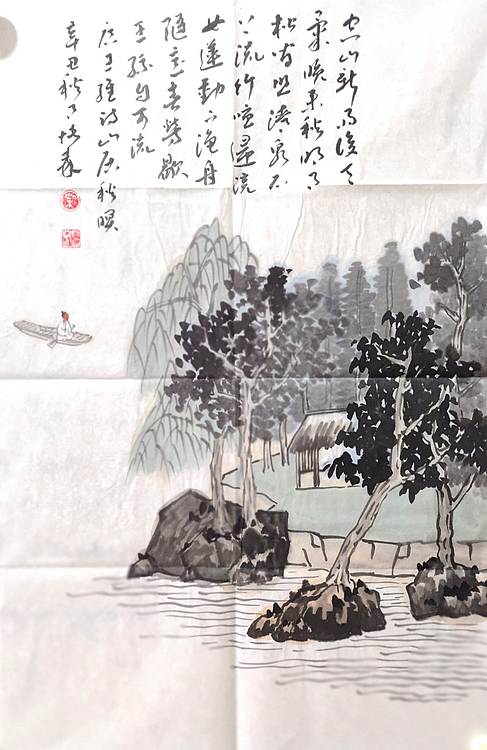 空山新雨後天
氣晚来秋明月
松间照清泉石
上流竹喧歸浣
女蓮動下漁舟
隨意春芳歇
王孫自可留
唐王維詩山居秋暝
辛丑秋